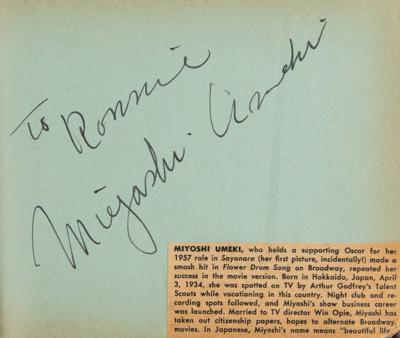 To Ronnie
Miyoshi Umeki
MIYOSHI UMEKI, who holds a supporting Oscar for her
1957 role in Sayonara (her first picture, incidentally!) made a
smash hit in Flower Drum Song on Broadway, repeated her
success in the movie version. Born in Hokkaido, Japan, April
3, 1934, she was spotted on TV by Arthur Godfrey's Talent
Scouts while vacationing in this country. Night club and re-
cording spots followed, and Miyoshi's show business career
was launched. Married to TV director Win Opie, Miyoshi has
taken out citizenship papers, hopes to alternate Broadway,
movies. In Japanese, Miyoshi's name means "beautiful life